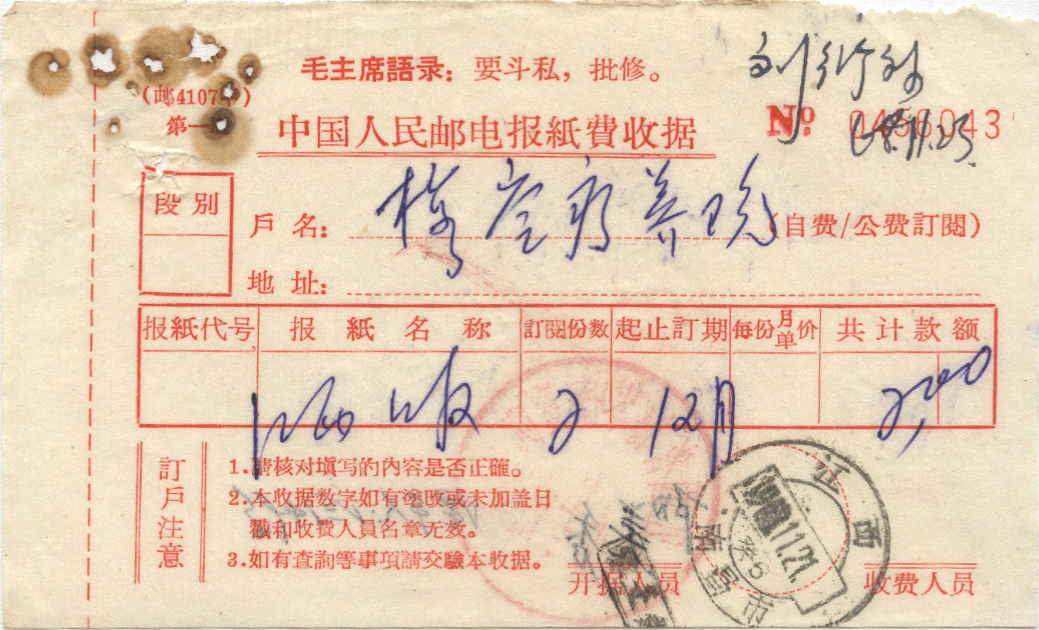 毛主席語录：要斗私，批修。
(邮4107
第一
中国人民邮电报紙費收据
№ 0456043
段別
戶名：疗养院（自费/公费訂閱）
地址：
报紙代号 报紙名称 訂閱份数 起止訂期 每份月单价 共计款额
江西日报 2 12月 2,00
訂戶注意
1.請核对填写的內容是否正確。
2.本收据数字如有塗改或未加盖日
戳和收费人員名章无效。
3.如有查詢等事項請交驗本收据。
开据人员 收费人员
江西
南昌市
11.21